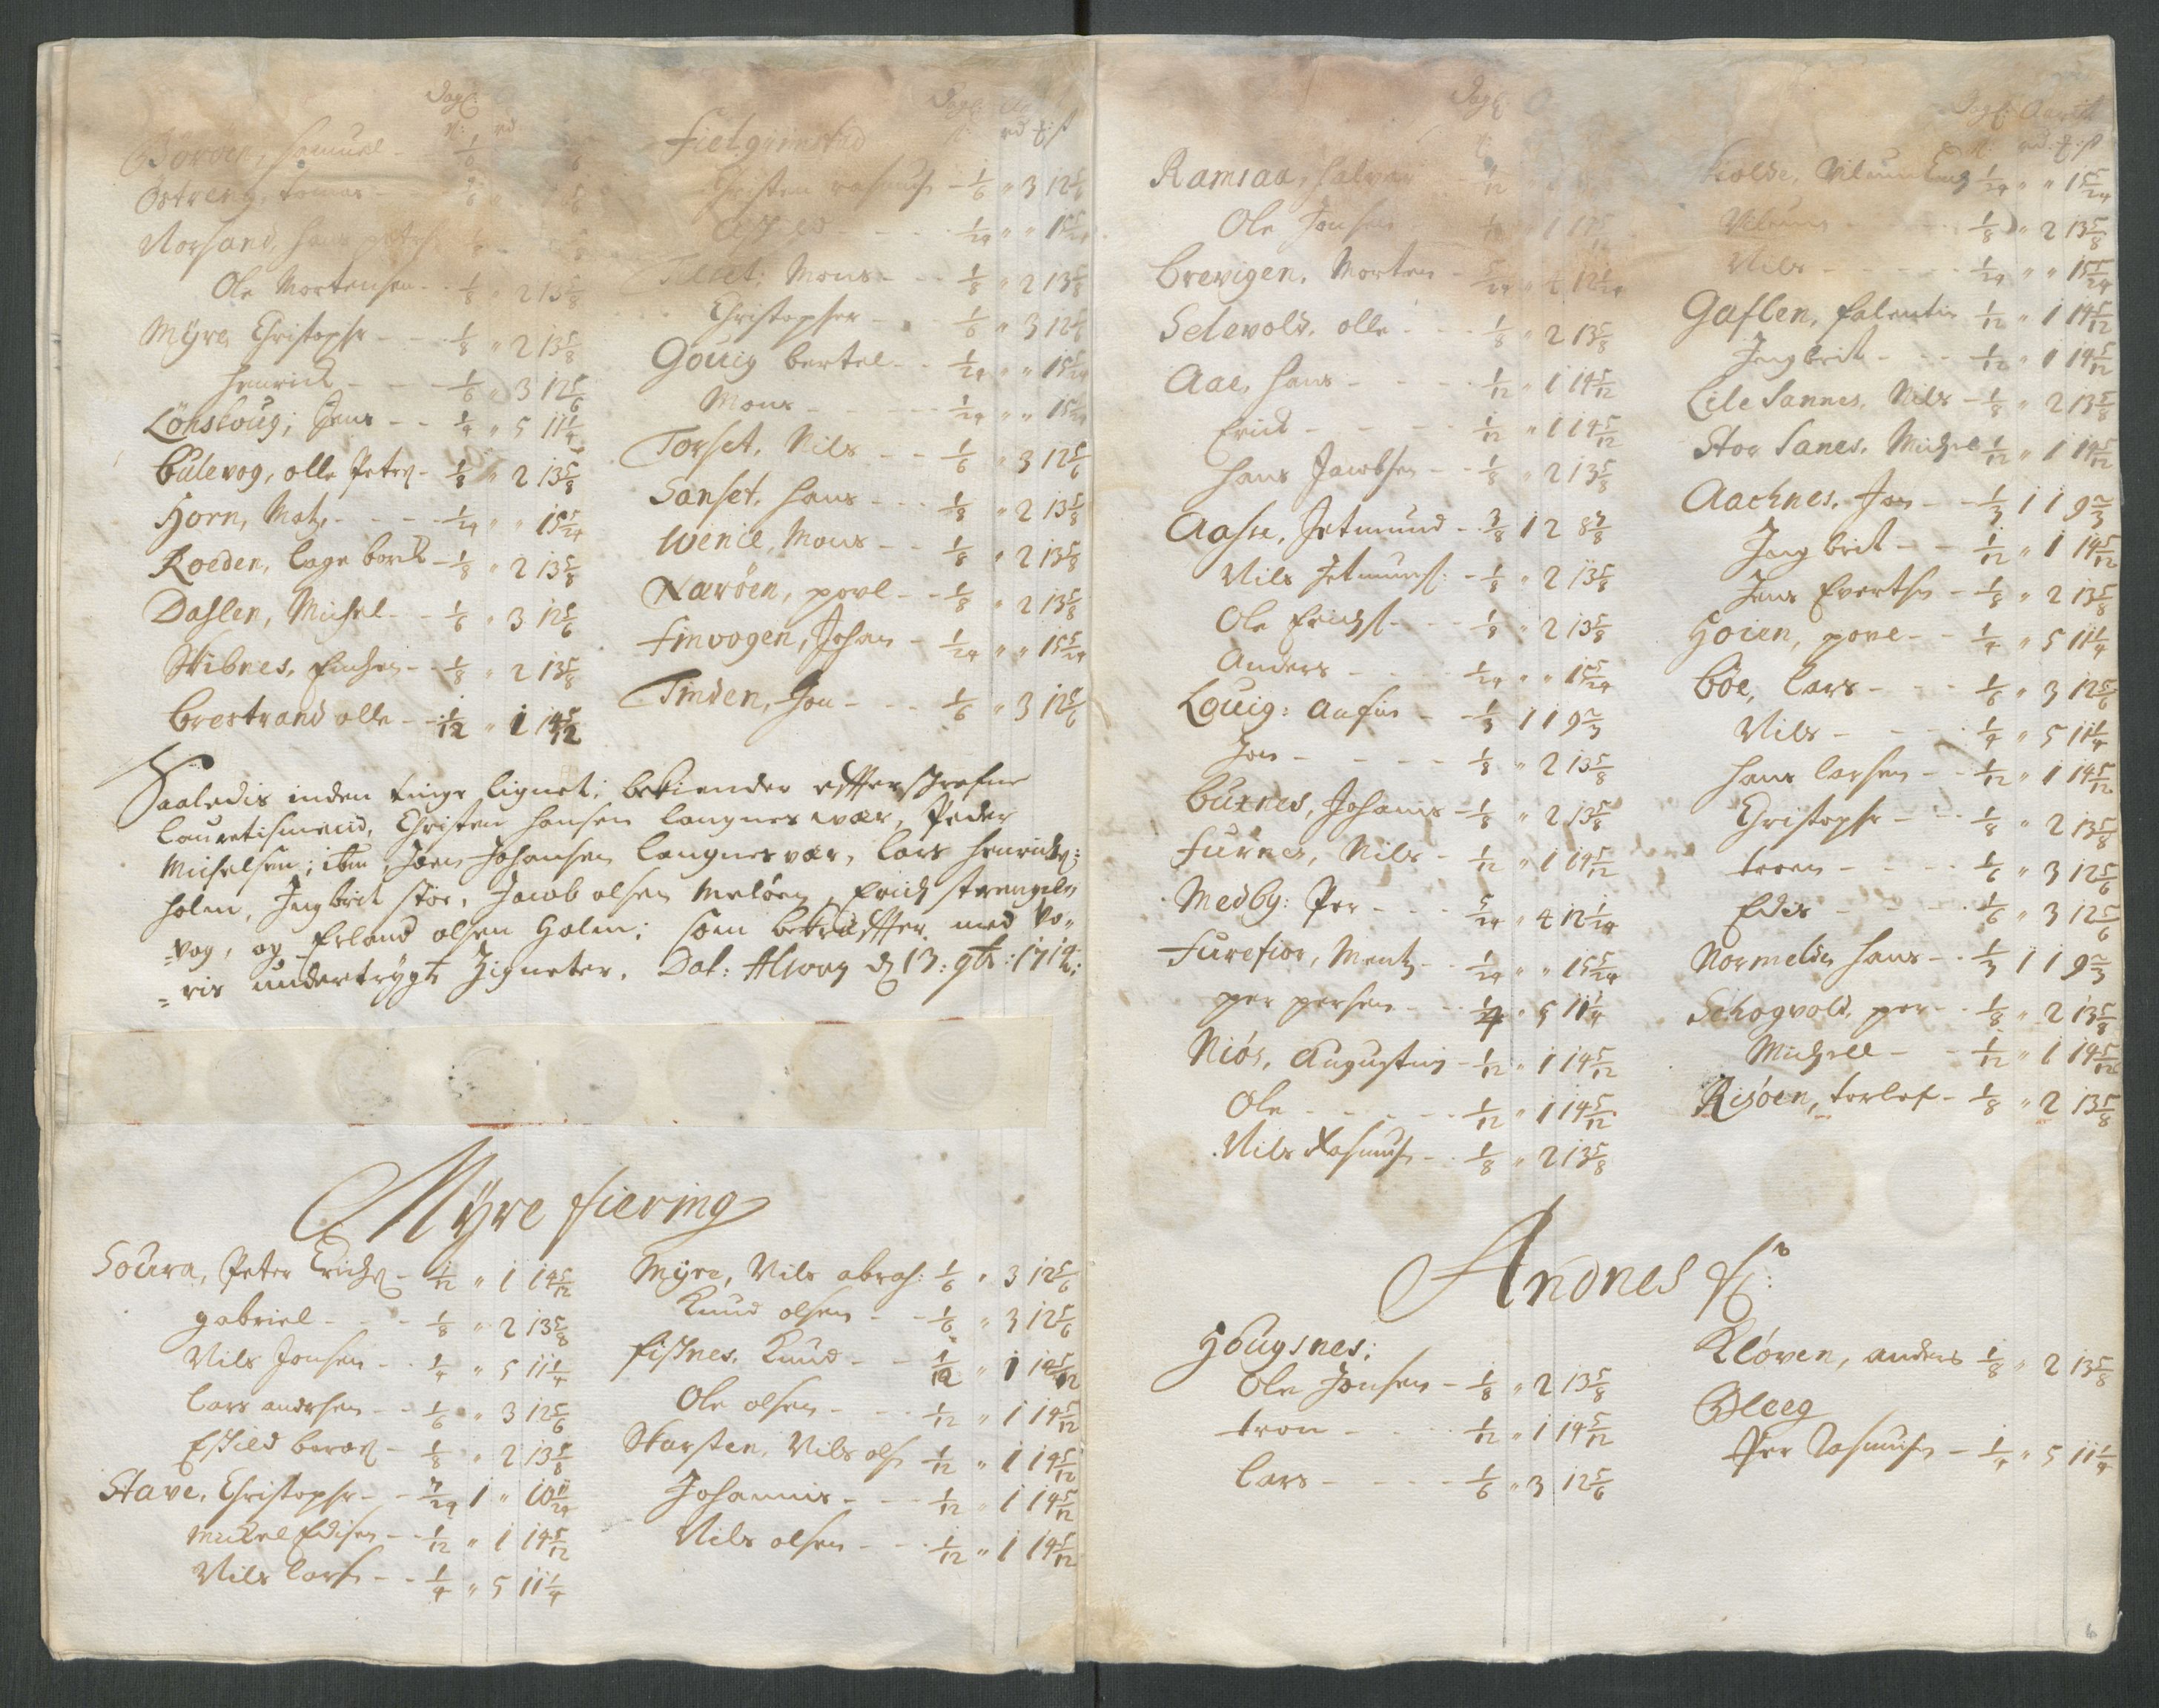 Dagl:
Boröen, Samuel - 1/6
Östreng, tomas
Norsand, hans
Ole Mortensen - 1/8 " 2 13 5/8
Myre, Christophr - - 1/8 " 2 13 5/8
Henrich - - - 1/6 " 3 12 5/6
Lönskoug; Jens - - 1/4 " 5 11 1/4
Bulevog, olle Peters - 1/8 " 2 13 5/8
Horn, Matz - - - 1/24 " " 15 5/24
Roeden, lage - 1/8 " 2 13 5/8
Dahlen, Michel - - 1/6 " 3 12 5/6
Skibnes, - - 1/8 " 2 13 5/8
Brestrand olle - - 1/12 " 1 14 5/12
Dagl:
rd ort ß
Fielgrimstad
Christen rasmus - 1/6 " 3 12 5/6
- - - 1/24 " " 15 5/24
Mons - - - 1/8 " 2 13 5/8
Christopher - - 1/6 " 3 12 5/6
Gouig bertel - - 1/24 " " 15 5/24
Mons - - - 1/24 " " 15 5/24
Torset, Nils - - 1/6 " 3 12 5/6
Sanset, hans - - - 1/8 " 2 13 5/8
Wenie, Mons - - 1/8 " 2 13 5/8
Næröen, povl - - 1/8 " 2 13 5/8
Finvogen, Johan - 1/24 " " 15 5/24
Tinden, Jon - - - 1/6 " 3 12 5/6
Saaledis inden tinge lignet; bekiender effterskrefne
lauretismend, Christen Hansen langnesvær, Peder
Michelsen; ibm, Joen Johansen langnesvær, lars Henrichs:
holm, Ingbrit störe, Jacob olsen Melöen, Erich strengels
=vog, og Erland olsen Holm; som bekræffter med vo=
=ris undertrygte Zigneter. Dat: Alsvog d 13: 9br: 1712:
Myre fiering
Soura, Peter Erichs - 1/12 " 1 14 5/12
gabriel - - - 1/8 " 2 13 5/8
Nils Jonsen - - 1/4 " 5 11 1/4
Lars andersen - - 1/6 " 3 12 5/6
Eskild - 1/8 " 2 13 5/8
Stave, Christophr - - 7/24 1 " 10 11/24
Mickel Edisen - - 1/12 " 1 14 5/12
Nils Lars - - 1/4 " 5 11 1/4
Myre, Nils abrah: 1/6 " 3 12 5/6
Knud olsen - - 1/6 " 3 12 5/6
Fisknes, Knud - - 1/12 " 1 14 5/12
Ole olsen - - - 1/12 " 1 14 5/12
Skarsten, Nils ols 1/12 " 1 14 5/12
Johannis - - - 1/12 " 1 14 5/12
Nils olsen - - - 1/12 " 1 14 5/12
Dagl:
Ramsaa, halvor - 1/12
Ole Jonsen
Brevigen, Morten - 5/24 " 4 12 1/24
Selevold, olle - - - 1/8 " 2 13 5/8
Aae, hans - - - 1/12 " 1 14 5/12
Erick - - - - 1/12 " 1 14 5/12
hans Jacobsen - - 1/8 " 2 13 5/8
Aasse, Jetmund - - 3/8 1 2 8 7/8
Nils Jetmunds: - 1/8 " 2 13 5/8
Ole Erichs - - - 1/8 " 2 13 5/8
Anders - - - - 1/24 " " 15 5/24
Louig: Anfin - - 1/3 1 1 9 2/3
Jon - - - - 1/8 " 2 13 5/8
Buxnes, Johanis - 1/8 " 2 13 5/8
Furnes, Nils - 1/12 " 1 14 5/12
Medby: Per - - - 5/24 " 4 12 1/24
Furefior, Mentz - - 1/24 " " 15 5/24
per persen - - - 1/4 " 5 11 1/4
Niös, Augustin - 1/12 " 1 14 5/12
Ole - - - - - 1/12 " 1 14 5/12
Nils Rasmus - - 1/8 " 2 13 5/8
Dagl: Aarlit
rd: ort: ß
1/24 " " 15 5/24
- - - 1/8 " 2 13 5/8
Nils - - - - 1/24 " " 15 5/24
Gaflen, falentin 1/12 " 1 14 5/12
Ingbrit - - - 1/12 " 1 14 5/12
Lile Sannes, Nils - 1/8 " 2 13 5/8
Stor Sanes, Michel 1/12 " 1 14 5/12
Aachnes, Jon - - 1/3 1 1 9 2/3
Ingbrit - - 1/12 " 1 14 5/12
Jens Evertsn - 1/8 " 2 13 5/8
Hoien, povel - - 1/4 " 5 11 1/4
Böe, Lars - - - 1/6 " 3 12 5/6
Nils - - - - 1/4 " 5 11 1/4
hans larsen - - 1/12 " 1 14 5/12
Christophr - - - 1/8 " 2 13 5/8
troen - - - - 1/6 " 3 12 5/6
Edis - - - - 1/6 " 3 12 5/6
Normelde, hans - - 1/3 1 1 9 2/3
Schogvold, per - - 1/8 " 2 13 5/8
Michell - - 1/12 " 1 14 5/12
Risöen, torlef - 1/8 " 2 13 5/8
Andnes f:
Hougsnes;
Ole Jonsen - 1/8 " 2 13 5/8
tron - - - - 1/12 " 1 14 5/12
Lars - - - - 1/6 " 3 12 5/6
Klöven, anders 1/8 " 2 13 5/8
Bleeg
Per Rasmusn - 1/4 " 5 11 1/4
6